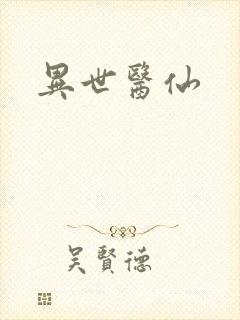 異世醫仙
吳賢德